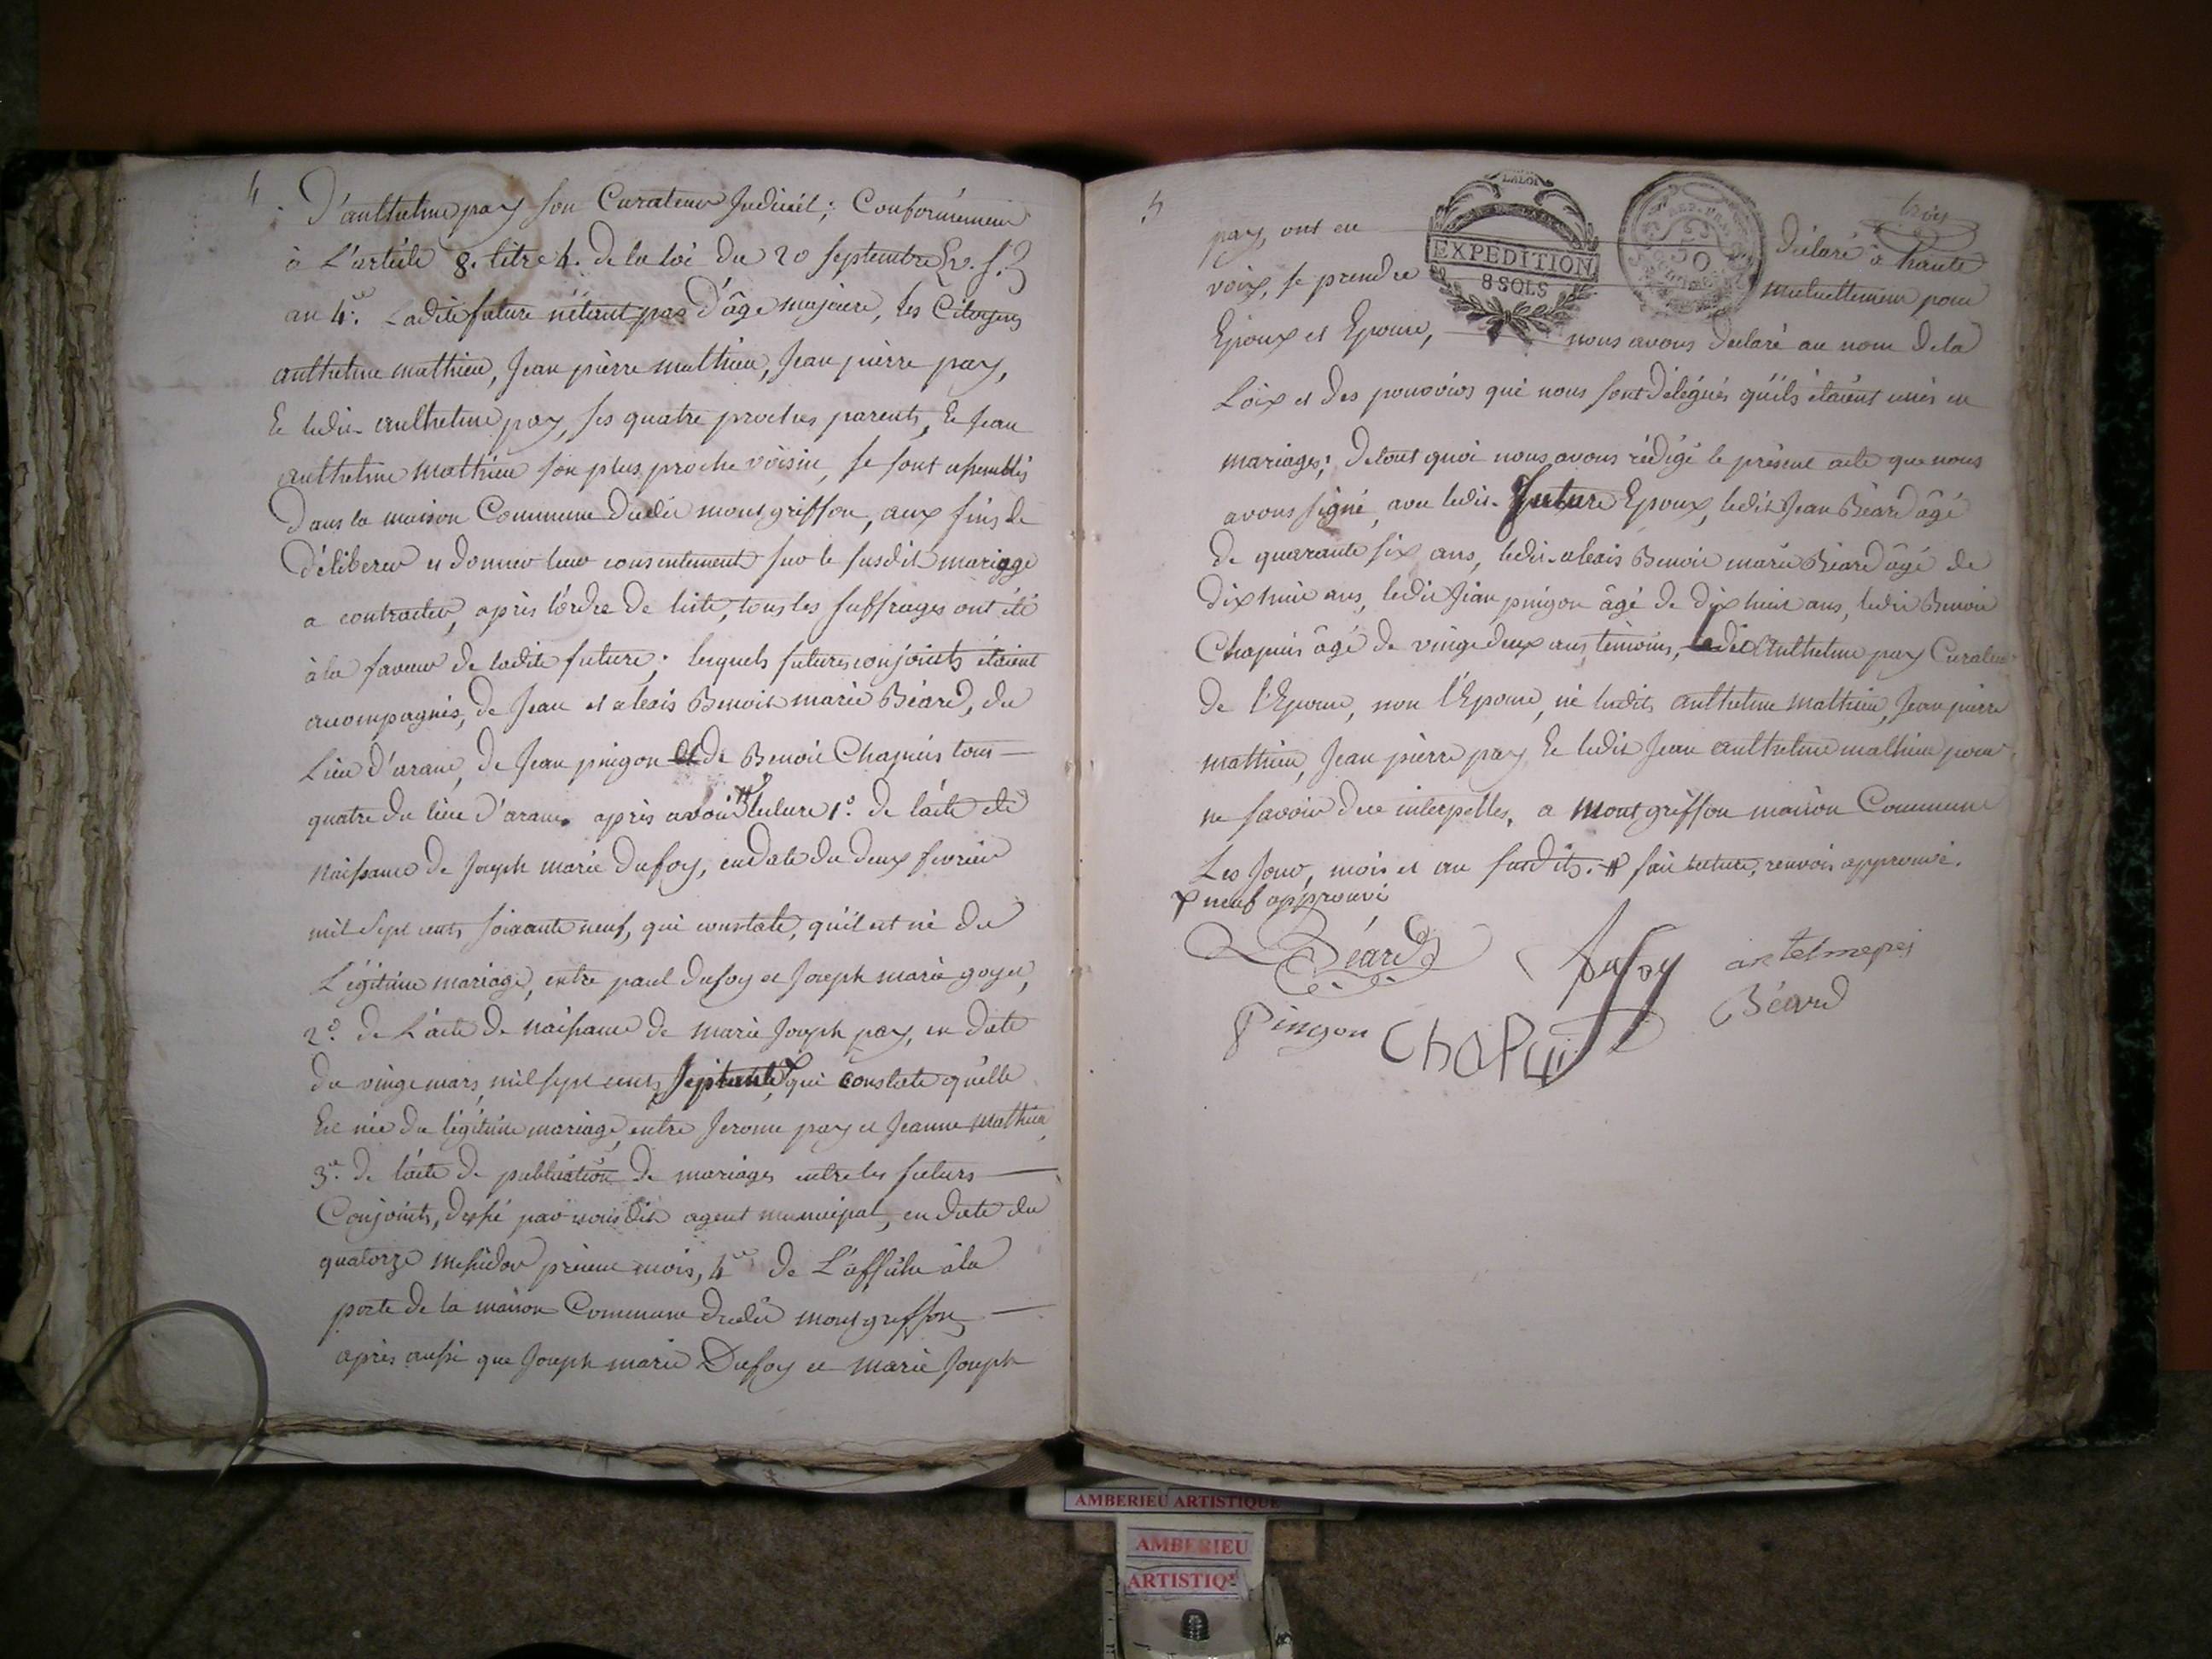 4
D'anthelme pay son Curateur Judiciél; Conformémeni
à L'article 8. titre 4. de la loi du 20 septembre v. s.
an 4e. Ladite future n'étant pas d'âge majeure, les Citoyens
anthelme mathieu, Jean pierre mathieu, Jean pierre pay,
Et ledit anthelme pay, ses quatre proches parents, Et Jean
anthelme Mathieu son plus proche voisin, se sont assemblés
Dans la maison Commune dudit montgriffon, aux fins de
Déliberer et donner leur consentement sur le susdit mariage
a contracter, après l'ordre de liste, tous les suffrages ont été
à la faveur de ladite future; lesquels futures conjoints étaient
accompagnés, de Jean et alexis Benoit marie Béard, du
Lieu d'aranc, de Jean pingon et de Benoit Chapuis tous
quatre du lieu d'aranc. après avoir # lecture 1°. de l'acte de
Naissance de Joseph marie Dufoy, en date du deux fevrier
mil sept cents soixante neuf, qui constate, qu'il est né du
Légitime mariage, entre paul Dufoy et Joseph marie goyet,
2°. de L'acte de Naissance de marie Joseph pay, en date
du vingt mars, mil sept cents septante, qui constate qu'elle
Est née du légitime mariage, entre Jerome pay et Jeanne Mathieu,
3e. de l'acte de publication de mariages entre les futurs
Conjoints, dressé par nous dit agent municipal, en date du
quatorze messidor présent mois, 4e de L'affiche à la
porte de la maison Commune dudit montgriffon
après aussi que Joseph marie Dufoy et marie Joseph
5
pay, ont eu Déclaré à haute
voix, se prendre mutuellement pour
LA LOI
EXPEDITION
8 SOLS
REP. FRA.
50
Epoux et Epouse, nous avons déclaré au nom de la
Loix et des pouvoirs qui nous sont délégués qu'ils étaient unis en
mariages; de tout quoi nous avons rédigé le présent acte que nous
avons signé, avec ledit future Epoux, ledit Jean Béard âgé
de quarante six ans, ledit alexis Benoit marie Béard âgé de
dix huit ans, ledit Jean pingon âgé de dix huit ans, ledit Benoit
Chapuis âgé de vingt deux ans, témoins, ledit Anthelme pay Curateur
de l'Epouse, non l'Epouse, ni lesdits anthelme mathieu, Jean pierre
mathieu, Jean pierre pay Et ledit Jean anthelme mathieu pour
ne savoir de ce interpellés, a montgriffon maison Commune
Les Jour, mois et an susdits. # fait lecture, renvois approuvé.
x neuf approuvé
Béard Dufoy antelme pei
Pingon Chapui Béard
AMBERIEU ARTISTIQUE
AMBERIEU
ARTISTIQUE